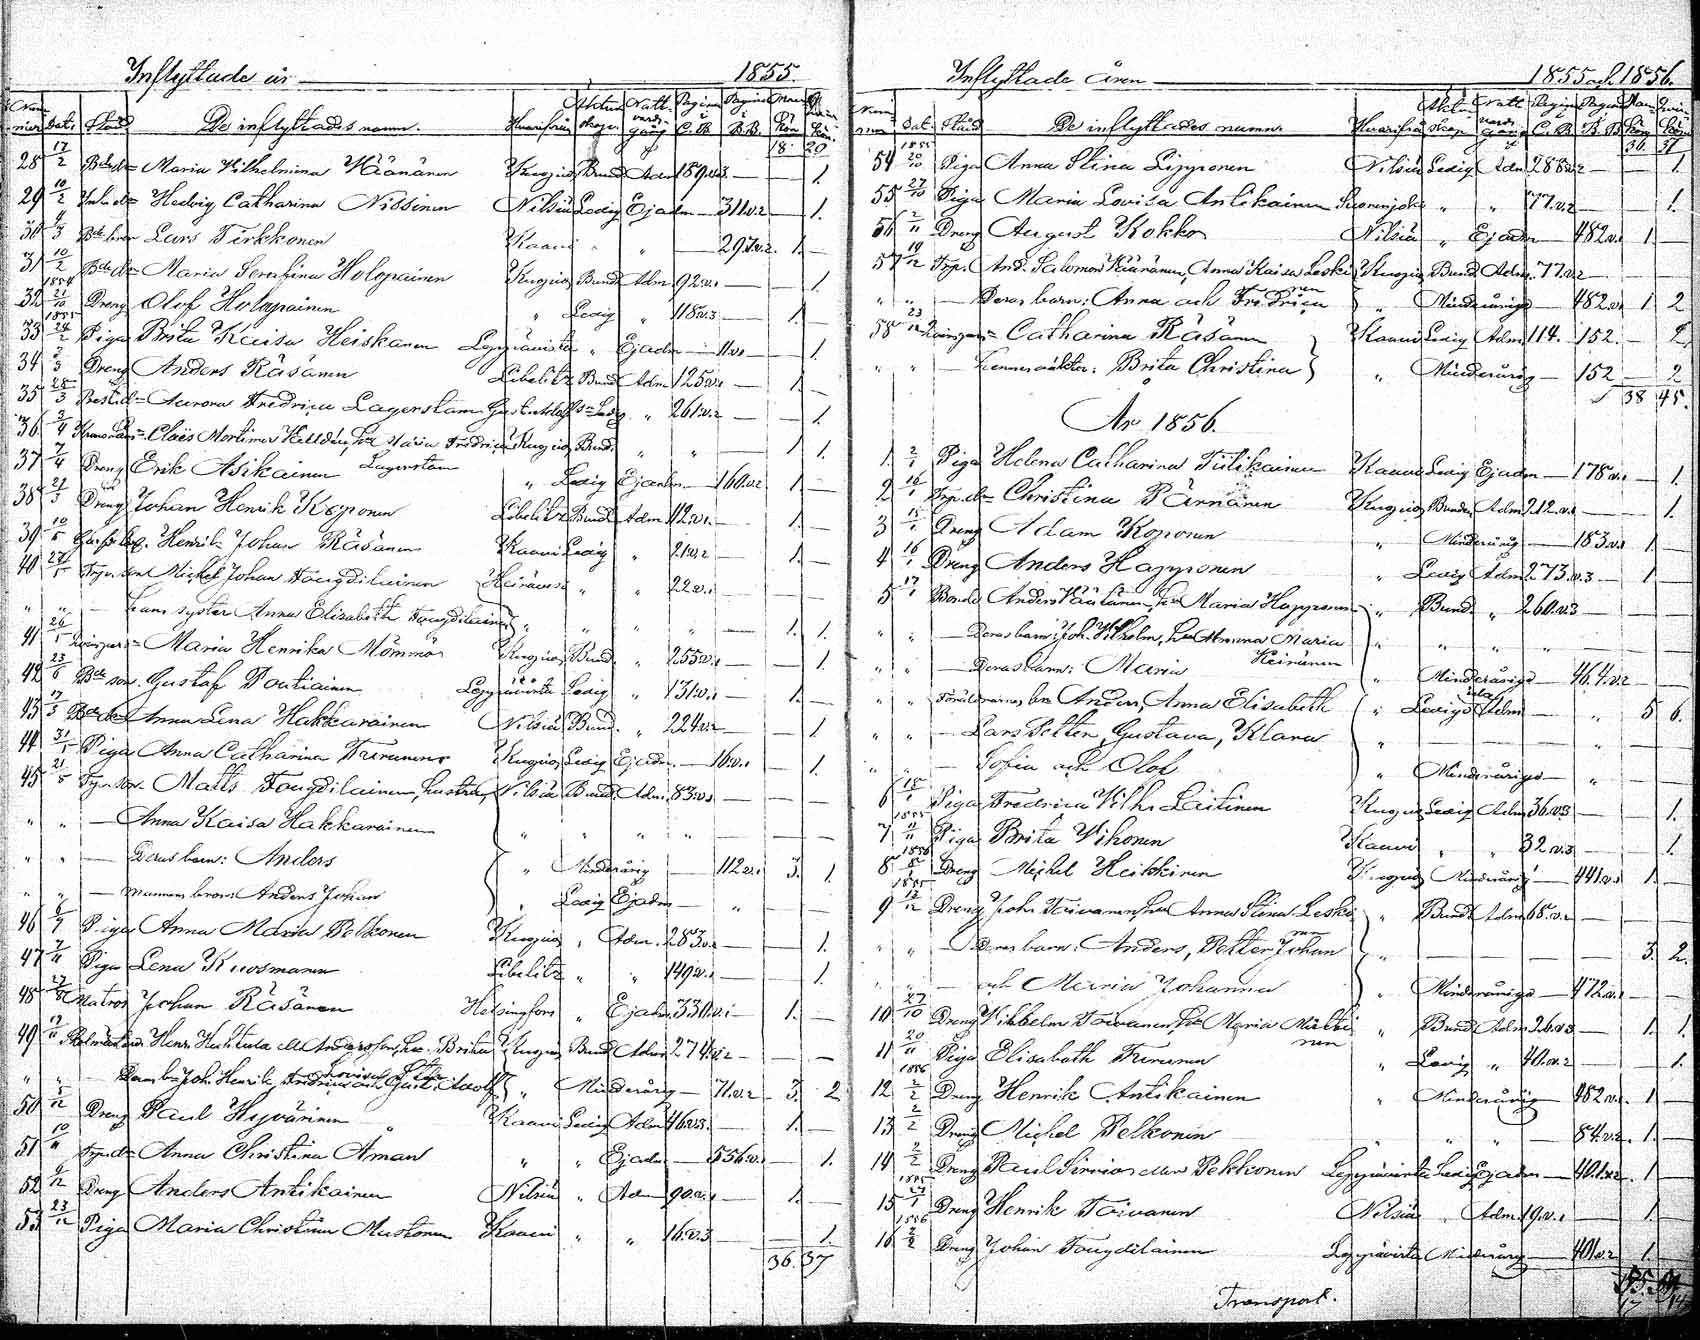 Inflyttade år 1855.
Nummer Dat. Stånd De inflyttades namn. Hvarifrån Ektenskap. Nattvardsgång Pagina i C.B. Pagina i B.B. Mankön Qvinkön
18 20
28 17/2 Bdedr Maria Wilhelmina Väänänen Kuopio Bunden Adm 189.v.3. — 1.
29 10/2 Inh.dr Hedvig Catharina Nissinen Nilsiä Ledig Ej adm — 311.v.2 — 1.
30 4/3 Bde bror Lars Tirkkonen Kaavi " " — 297.v.2. 1. —
31 10/2 Bdedr Maria Serafina Holopainen Kuopio Bund Adm 92.v.1 — 1.
1854
32 21/10 Dreng Olof Holopainen " Ledig " 118.v.3 — 1. —
1855
33 24/2 Piga Brita Kaisa Heiskanen Leppävirta " Ej adm — 11.v.1 — 1.
34 2/3 Dreng Anders Räsänen Libelitz Bund Adm 125.v.1 — 1.
35 28/3 Prest.dr Aurora Fredrica Lagerstam Ledig " 261.v.2 — 1.
36 2/4 Claës Mortimer Fredrica Kuopio Bund. " " — 1 1.
Lagerstam
37 7/4 Dreng Erik Asikainen " Ledig Ej adm — 160.v.2 1. —
38 21/3 Dreng Johan Henrik Koponen Libelitz Bund Adm 112.v.1. — 1. —
39 10/5 Henrik Johan Räsänen Kaavi Ledig " 21.v.2 — 1. —
40 27/5 Torp.son Michel Johan Fougdilainen " " 22.v.1 — — —
" " — hans syster Anna Elisabeth Fougdilainen " " " " — 1. 1.
41 26/5 Maria Henrika Mömmö Kuopio Bund. " 255.v.1 — 1.
42 23/6 Bde son Gustaf Poutiainen Leppävirta Ledig " 131.v.1 — 1.
43 17/5 Anna Lena Hakkarainen Nilsiä Bund. " 224.v.2 — 1
44 31/5 Piga Anna Catharina Turunen Kuopio Ledig Ej adm. — 16.v.1 — 1.
45 21/5 Torp.son Matts Fougdilainen, hustru, Nilsiä Bund. Adm. 83.v.1 — — —
" " — Anna Kaisa Hakkarainen " " " " — — —
" " — Deras barn: Anders " Minderårig — 112.v.1 3. 1.
" " — mannens bror: Anders Johan " Ledig Ej adm — " — —
46 6/7 Piga Anna Maria Pelkonen Kuopio " Adm. 283.v.2 — 1.
47 7/11 Piga Lena Kuosmanen Libelitz " " 149.v.1 — 1.
48 27/8 Matros Johan Räsänen Helsingfors " Ej adm. 330.v.1 — 1. —
49 17/11 Henr. Huttula eller Andersson, hu. Brita Kuopio Bund Adm 274.v.2 — — —
Lovisa
" " — Deras bn Joh. Henrik, Fredrica och Gust. Adolf " Minderårig — 71.v.2 3. 2
50 5/12 Dreng Paul Hyvärinen Kaavi Ledig Adm 46.v.3. — 1. —
51 10/11 Torp.dr Anna Christina Åman " " Ej adm — 556.v.1 — 1.
52 9/12 Dreng Anders Antikainen Nilsiä " Adm 90.v.1 — 1. —
53 23/12 Piga Maria Christina Mustonen Kaavi " " 16.v.3 — — 1.
36. 37
Inflyttade Åren 1855 och 1856.
Nummer Dat. Stånd De inflyttades namn. Hvarifrån Ektenskap Nattvardsgång Pagina i C.B. Pagina i B.B. Mankön Qvinkön
1855 36. 37
54 20/10 Piga Anna Stina Lipponen Nilsiä Ledig Adm 288.v.2 — — 1.
55 27/10 Piga Maria Lovisa Antikainen Suonenjoki " " 77.v.2 — 1.
56 2/11 Dreng August Kokko Nilsiä " Ej adm — 482.v.1 1. —
57 19/12 Torp. And. Salomon Väänänen, Anna Kaisa Leskinen Kuopio Bund Adm. 77.v.2 —
" " — Deras barn: Anna och Fredrica " Minderåriga — 482.v.1 1 2
58 23/12 Catharina Räsänen Kaavi Ledig Adm 114. 152. —
" " — hennes oäkta: Brita Christina " Minderårig — 152 — 2
38 45.
År 1856.
1. 2/1 Piga Helena Catharina Tiilikainen Kaavi Ledig Ej adm — 178.v.1 — 1.
2 16/1 Torp.dr Christina Pärnänen Kuopio Bunden Adm 212.v.1 — — 1.
3 15/1 Dreng Adam Koponen " Minderårig — 183.v.1 1. —
4 16/1 Dreng Anders Happonen " Ledig Adm 273.v.3 — 1 —
5 17/1 Bonde Anders Väätänen, hu Maria Happonen " Bund. " 260.v.3 — — —
" " — Deras barn: Joh. Wilhelm, hu Anna Maria " " " " — —
Keinänen
" " — Deras barn: Maria " Minderåriga — 464.v.2 — —
" " Föräldrarnes bn Anders, Anna Elisabeth " Lediga Adm — " 5 6.
" " — Lars Petter, Gustava, Klara " — — " — —
" " — Sofia och Olof " Minderåriga — " — —
6 15/1 Piga Fredrica Vilh. Laitinen Kuopio Ledig Adm 36.v.3 — — 1.
1855
7 11/11 Piga Brita Vihonen Kaavi " " 32.v.3 — — 1.
1856
8 5/1 Dreng Michel Heikkinen Kuopio Minderårig — 441.v.1 1. —
1855
9 12/12 Dreng Joh. Toivanen, hu Anna Stina Leskinen " Bund. Adm 68.v.2 — — —
" " — Deras barn: Anders, Petter Johan " — — — 3. 2.
" " — och Maria Johanna " Minderåriga — 472.v.1 — —
10 27/10 Dreng Vilhelm Toivanen, hu Maria Miettinen " Bund Adm 26.v.3 — 1. 1.
11 20/11 Piga Elisabeth Turunen " Ledig " 40.v.2 — — 1.
1856
12 2/2 Dreng Henrik Antikainen " Minderårig 482.v.1 1 —
13 2/2 Dreng Michel Pelkonen " " " 84.v.2. 1. —
14 2/2 Dreng Paul Sirviö eller Pekkonen Leppävirta Ledig Ej adm — 401.v.2. 1 —
1855
15 27/1 Dreng Henrik Toivanen Nilsiä " Adm. 19.v.1 — 1. —
1856
16 2/2 Dreng Johan Fougdilainen Leppävirta Minderårig — 401.v.2 1. —
Transport.